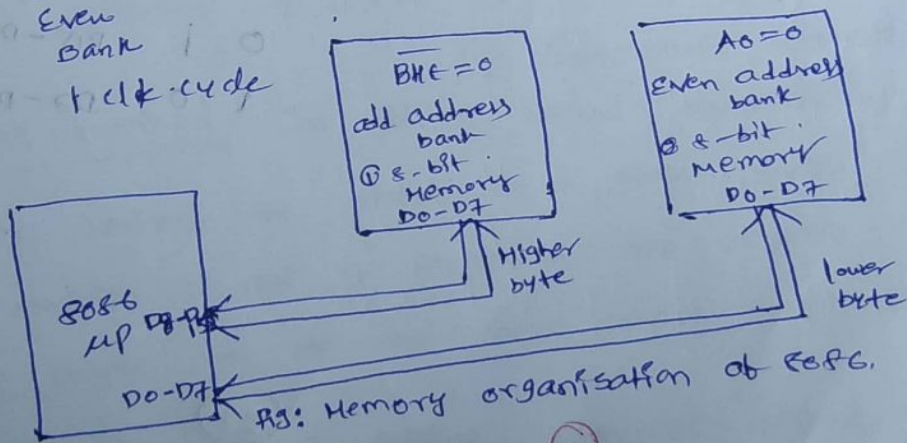 Even
Bank
1 clk.cycle
BHE = 0
odd address
bank
① 8-bit
Memory
D0-D7
A0 = 0
Even address
bank
8-bit
Memory
D0-D7
Higher
byte
lower
byte
8086
μP D8-D15
D0-D7
Fig: Memory organisation of 8086.